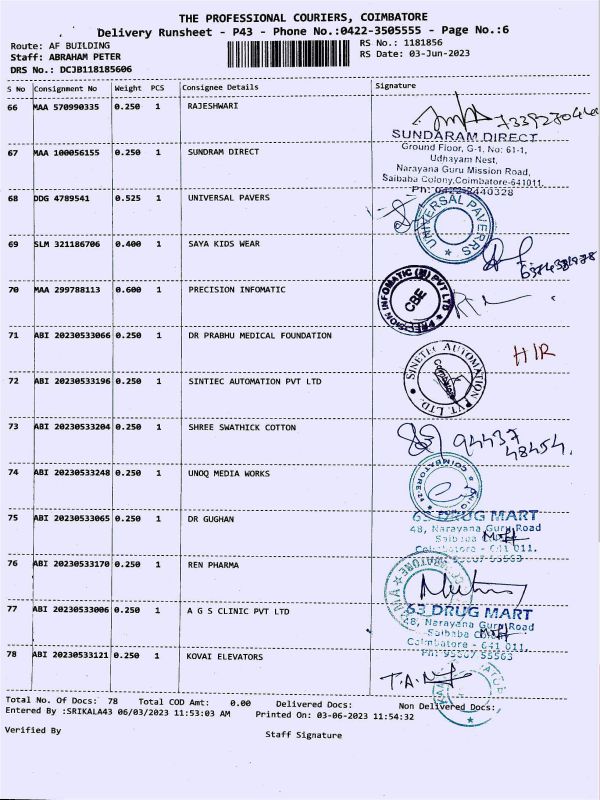 THE PROFESSIONAL COURIERS, COIMBATORE
Delivery Runsheet - P43 - Phone No.:0422-3505555 - Page No.:6
Route: AF BUILDING
RS No.: 1181856
Staff: ABRAHAM PETER
RS Date: 03-Jun-2023
DRS No.: DCJB118185606
S No Consignment No Weight PCS Consignee Details Signature
66 MAA 570990335 0.250 1 RAJESHWARI
SUNDARAM DIRECT
Ground Floor, G-1, No: 61-1,
67 MAA 100056155 0.250 1 SUNDRAM DIRECT
Udhayam Nest,
Narayana Guru Mission Road,
Saibaba Colony, Coimbatore-641011.
68 DDG 4789541 0.525 1 UNIVERSAL PAVERS
UNIVERSAL PAVERRS
69 SLM 321186706 0.400 1 SAYA KIDS WEAR
70 MAA 299788113 0.600 1 PRECISION INFOMATIC
PRECISION INFOMATIC (M) PVT LTD
CBE
71 ABI 20230533066 0.250 1 DR PRABHU MEDICAL FOUNDATION
H/R
72 ABI 20230533196 0.250 1 SINTIEC AUTOMATION PVT LTD
SINETEC AUTOMATION PVT. LTD.
73 ABI 20230533204 0.250 1 SHREE SWATHICK COTTON
94437
48454.
74 ABI 20230533248 0.250 1 UNOQ MEDIA WORKS
75 ABI 20230533065 0.250 1 DR GUGHAN
63 DRUG MART
48, Narayana Guru Road
Saibaba
Coimbatore - 641 011.
76 ABI 20230533170 0.250 1 REN PHARMA
77 ABI 20230533006 0.250 1 A G S CLINIC PVT LTD
63 DRUG MART
48, Narayana Guru Road
Saibaba
Coimbatore - 641 011.
78 ABI 20230533121 0.250 1 KOVAI ELEVATORS
Total No. Of Docs: 78 Total COD Amt: 0.00 Delivered Docs: Non Delivered Docs:
Entered By :SRIKALA43 06/03/2023 11:53:03 AM Printed On: 03-06-2023 11:54:32
Verified By
Staff Signature